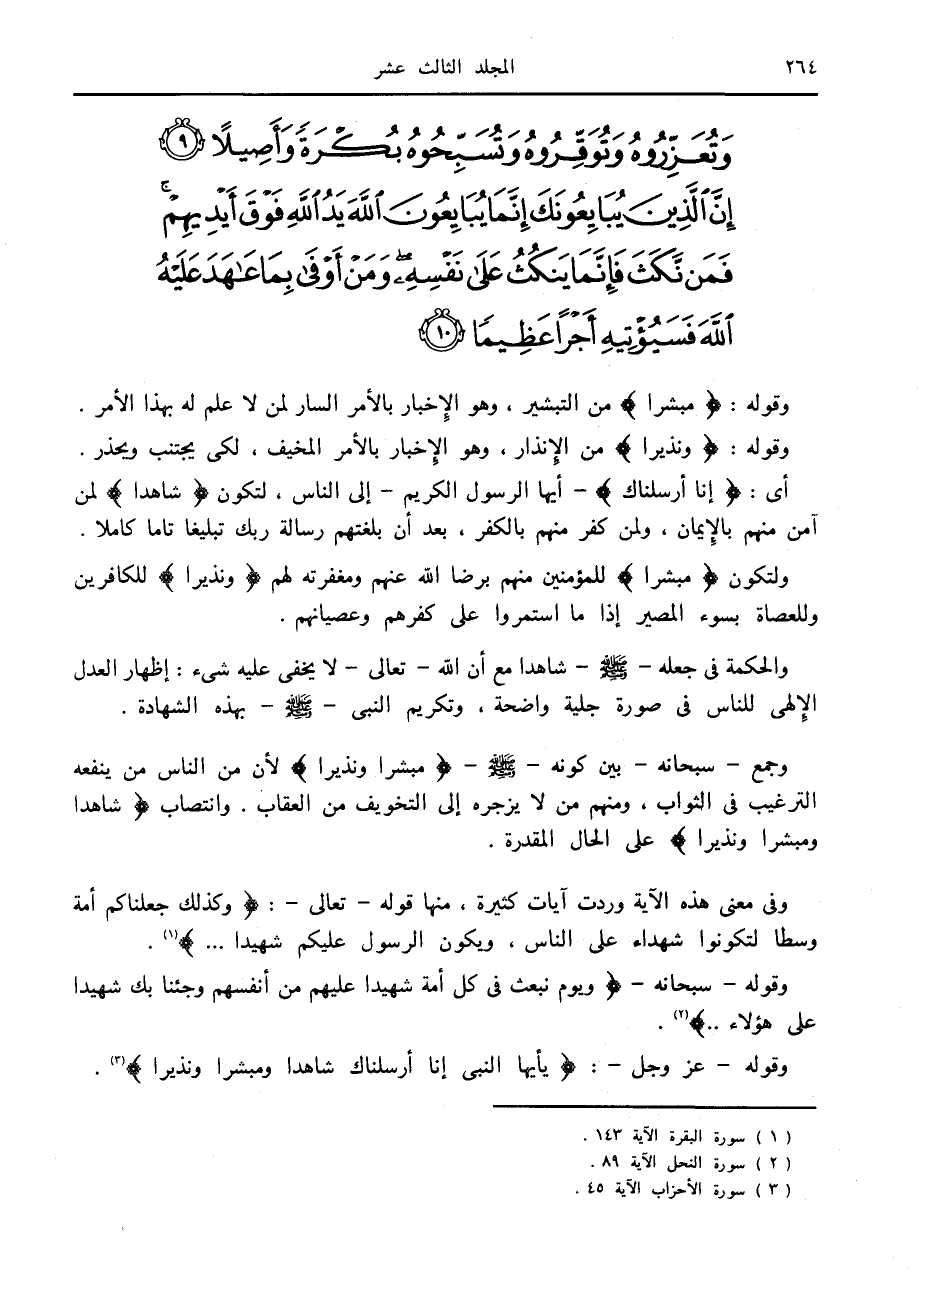 ٢٦٤ المجلد الثالث عشر
وَتُعَزِّرُوهُ وَتُوَقِّرُوهُ وَتُسَبِّحُوهُ بُكْرَةً وَأَصِيلًا ٩
إِنَّ ٱلَّذِينَ يُبَايِعُونَكَ إِنَّمَا يُبَايِعُونَ ٱللَّهَ يَدُ ٱللَّهِ فَوْقَ أَيْدِيهِمْ ۚ
فَمَن نَّكَثَ فَإِنَّمَا يَنكُثُ عَلَىٰ نَفْسِهِۦ ۖ وَمَنْ أَوْفَىٰ بِمَا عَـٰهَدَ عَلَيْهُ
ٱللَّهَ فَسَيُؤْتِيهِ أَجْرًا عَظِيمًا ١٠
وقوله : ﴿ مبشرا ﴾ من التبشير ، وهو الإخبار بالأمر السار لمن لا علم له بهذا الأمر .
وقوله : ﴿ ونذيرا ﴾ من الإنذار ، وهو الإخبار بالأمر المخيف ، لكى يجتنب ويحذر .
أى : ﴿ إنا أرسلناك ﴾ – أيها الرسول الكريم – إلى الناس ، لتكون ﴿ شاهدا ﴾ لمن
آمن منهم بالإيمان ، ولمن كفر منهم بالكفر ، بعد أن بلغتهم رسالة ربك تبليغا تاما كاملا .
ولتكون ﴿ مبشرا ﴾ للمؤمنين منهم برضا الله عنهم ومغفرته لهم ﴿ ونذيرا ﴾ للكافرين
وللعصاة بسوء المصير إذا ما استمروا على كفرهم وعصيانهم .
والحكمة فى جعله – ﷺ – شاهدا مع أن الله – تعالى – لا يخفى عليه شىء : إظهار العدل
الإلهى للناس فى صورة جلية واضحة ، وتكريم النبى – ﷺ – بهذه الشهادة .
وجمع – سبحانه – بين كونه – ﷺ – ﴿ مبشرا ونذيرا ﴾ لأن من الناس من ينفعه
الترغيب فى الثواب ، ومنهم من لا يزجره إلى التخويف من العقاب . وانتصاب ﴿ شاهدا
ومبشرا ونذيرا ﴾ على الحال المقدرة .
وفى معنى هذه الآية وردت آيات كثيرة ، منها قوله – تعالى – : ﴿ وكذلك جعلناكم أمة
وسطا لتكونوا شهداء على الناس ، ويكون الرسول عليكم شهيدا ... ﴾(١) .
وقوله – سبحانه – ﴿ ويوم نبعث فى كل أمة شهيدا عليهم من أنفسهم وجئنا بك شهيدا
على هؤلاء ..﴾(٢) .
وقوله – عز وجل – : ﴿ يأيها النبى إنا أرسلناك شاهدا ومبشرا ونذيرا ﴾(٣) .
( ١ ) سورة البقرة الآية ١٤٣ .
( ٢ ) سورة النحل الآية ٨٩ .
( ٣ ) سورة الأحزاب الآية ٤٥ .